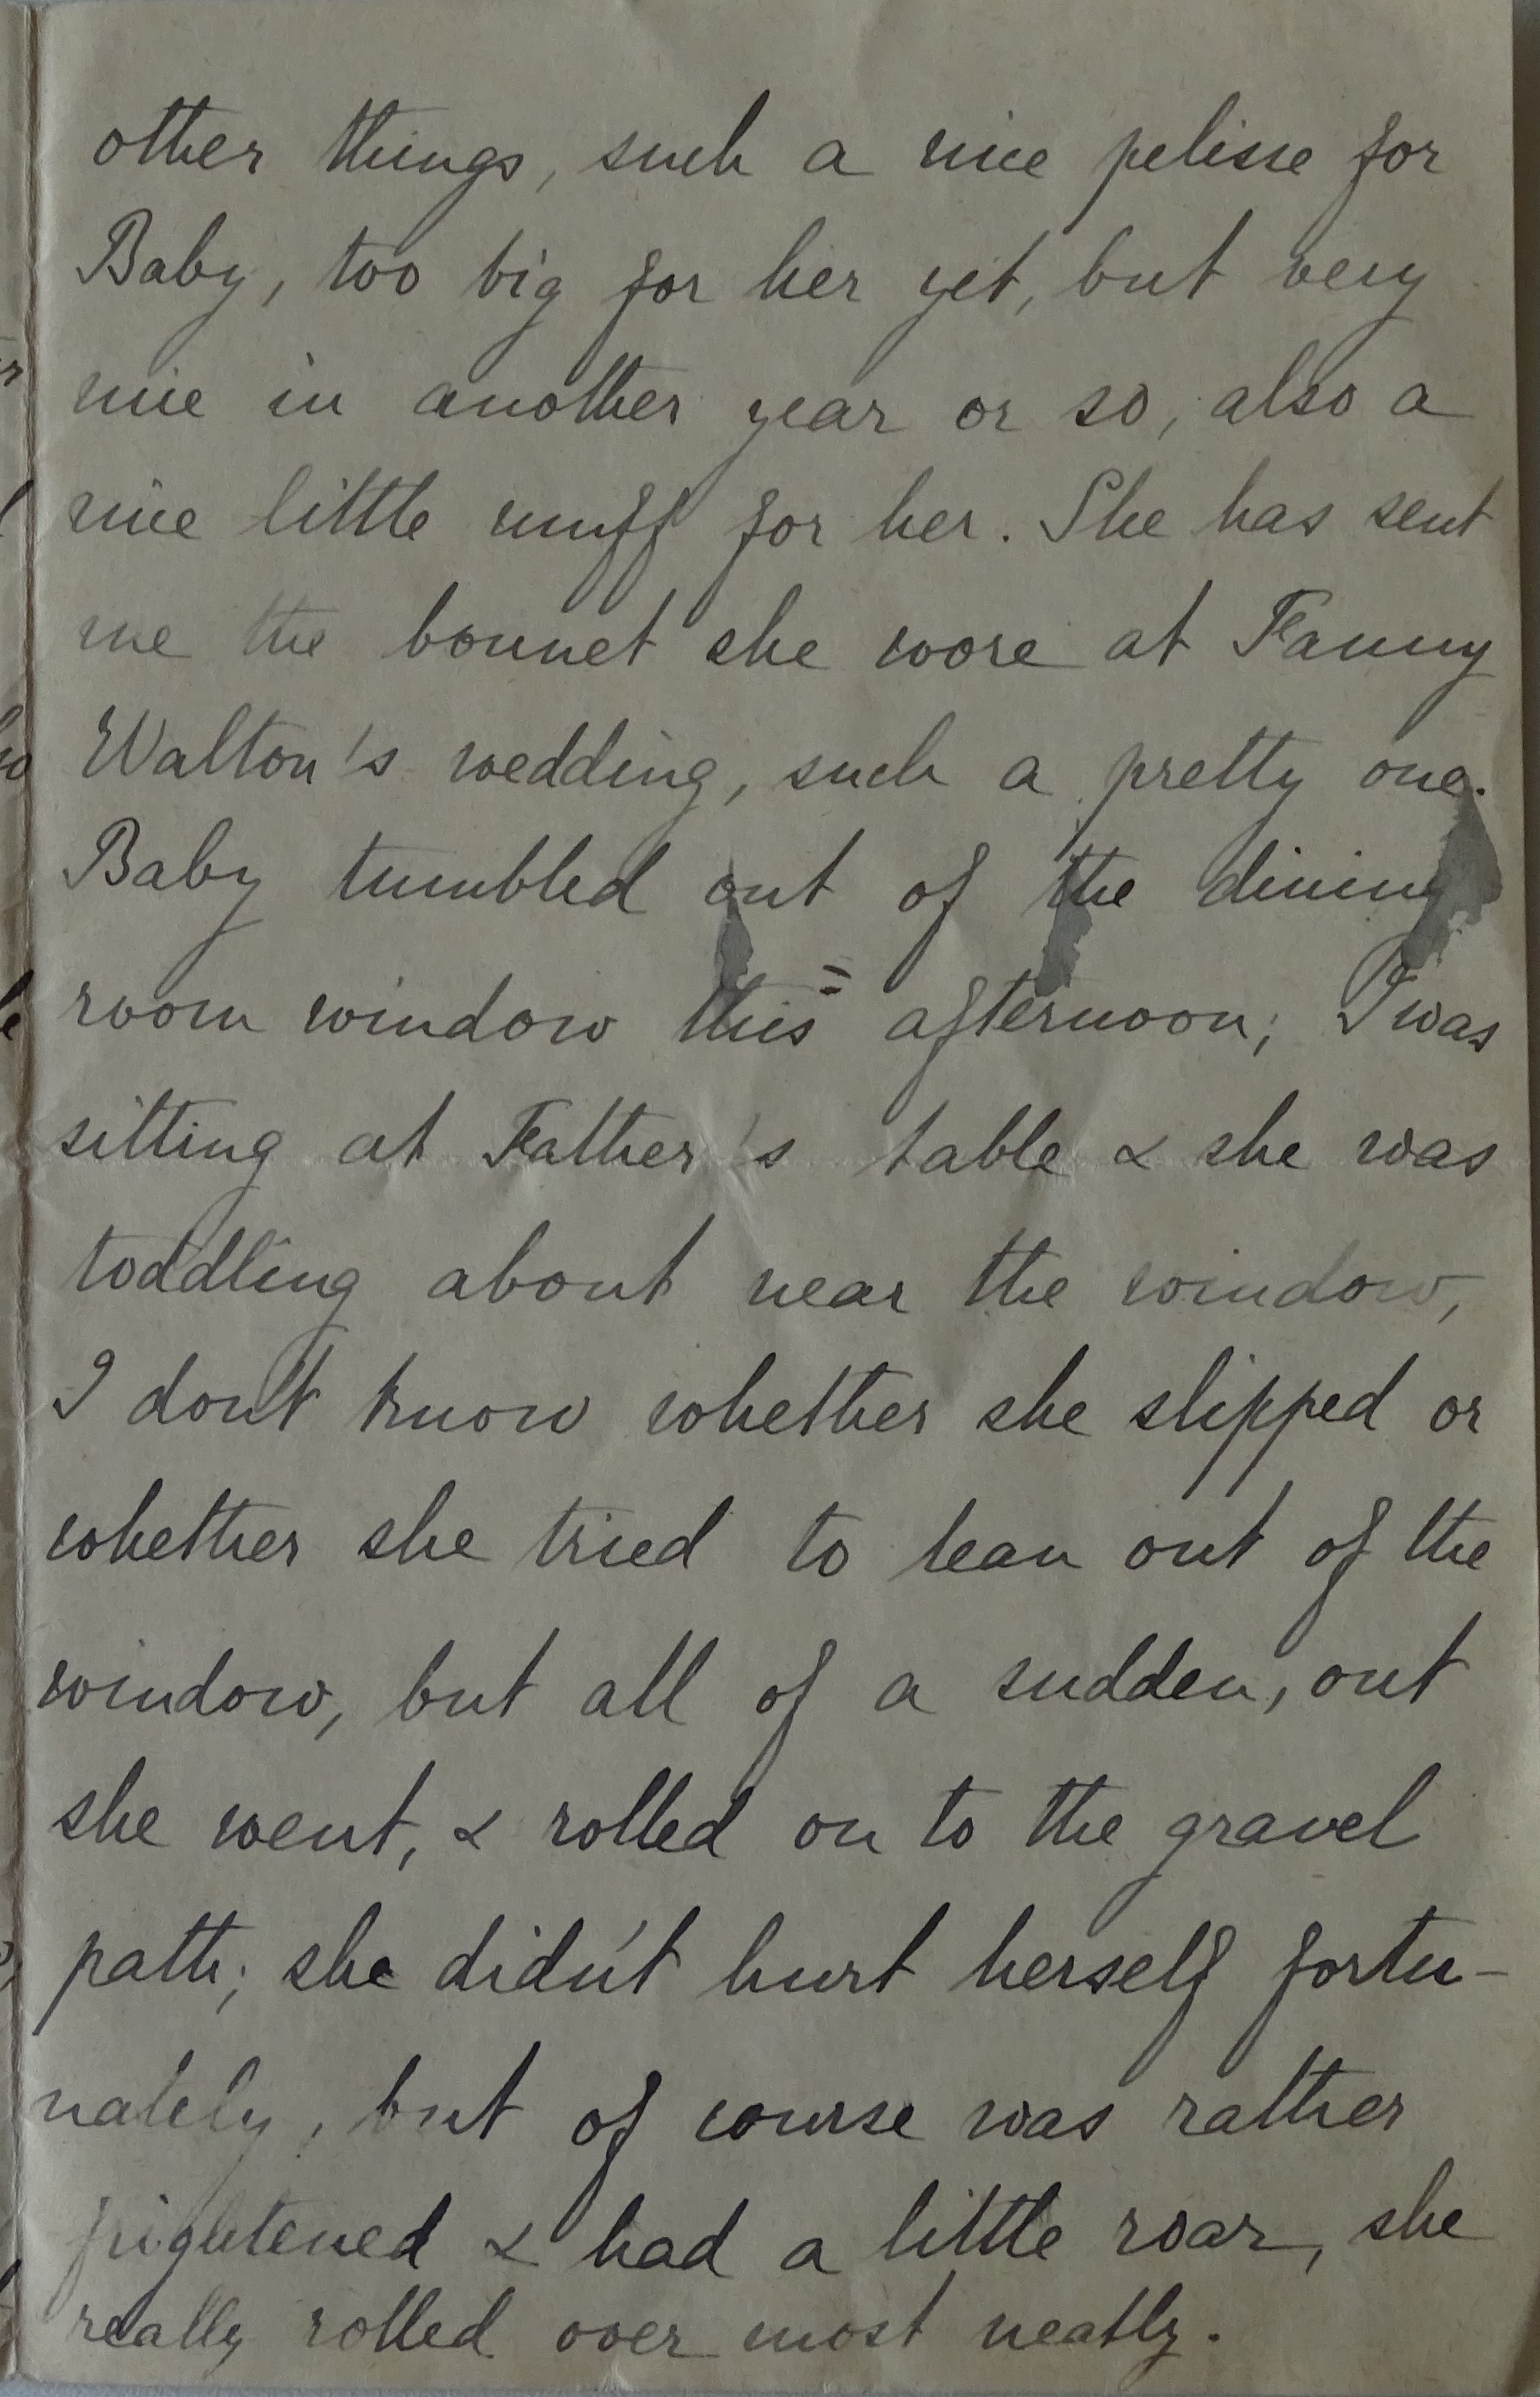 other things, such a nice pelisse for
Baby, too big for her yet, but very
nice in another year or so, also a
nice little muff for her. She has sent
me the bonnet she wore at Fanny
Walton's wedding, such a pretty one.
Baby tumbled out of the dining
room window this = afternoon; I was
sitting at Father's table & she was
toddling about near the window,
I don't know whether she slipped or
whether she tried to lean out of the
window, but all of a sudden, out
she went, & rolled on to the gravel
path; she didn't hurt herself fortu-
nately, but of course was rather
frightened & had a little roar, she
really rolled over most neatly.